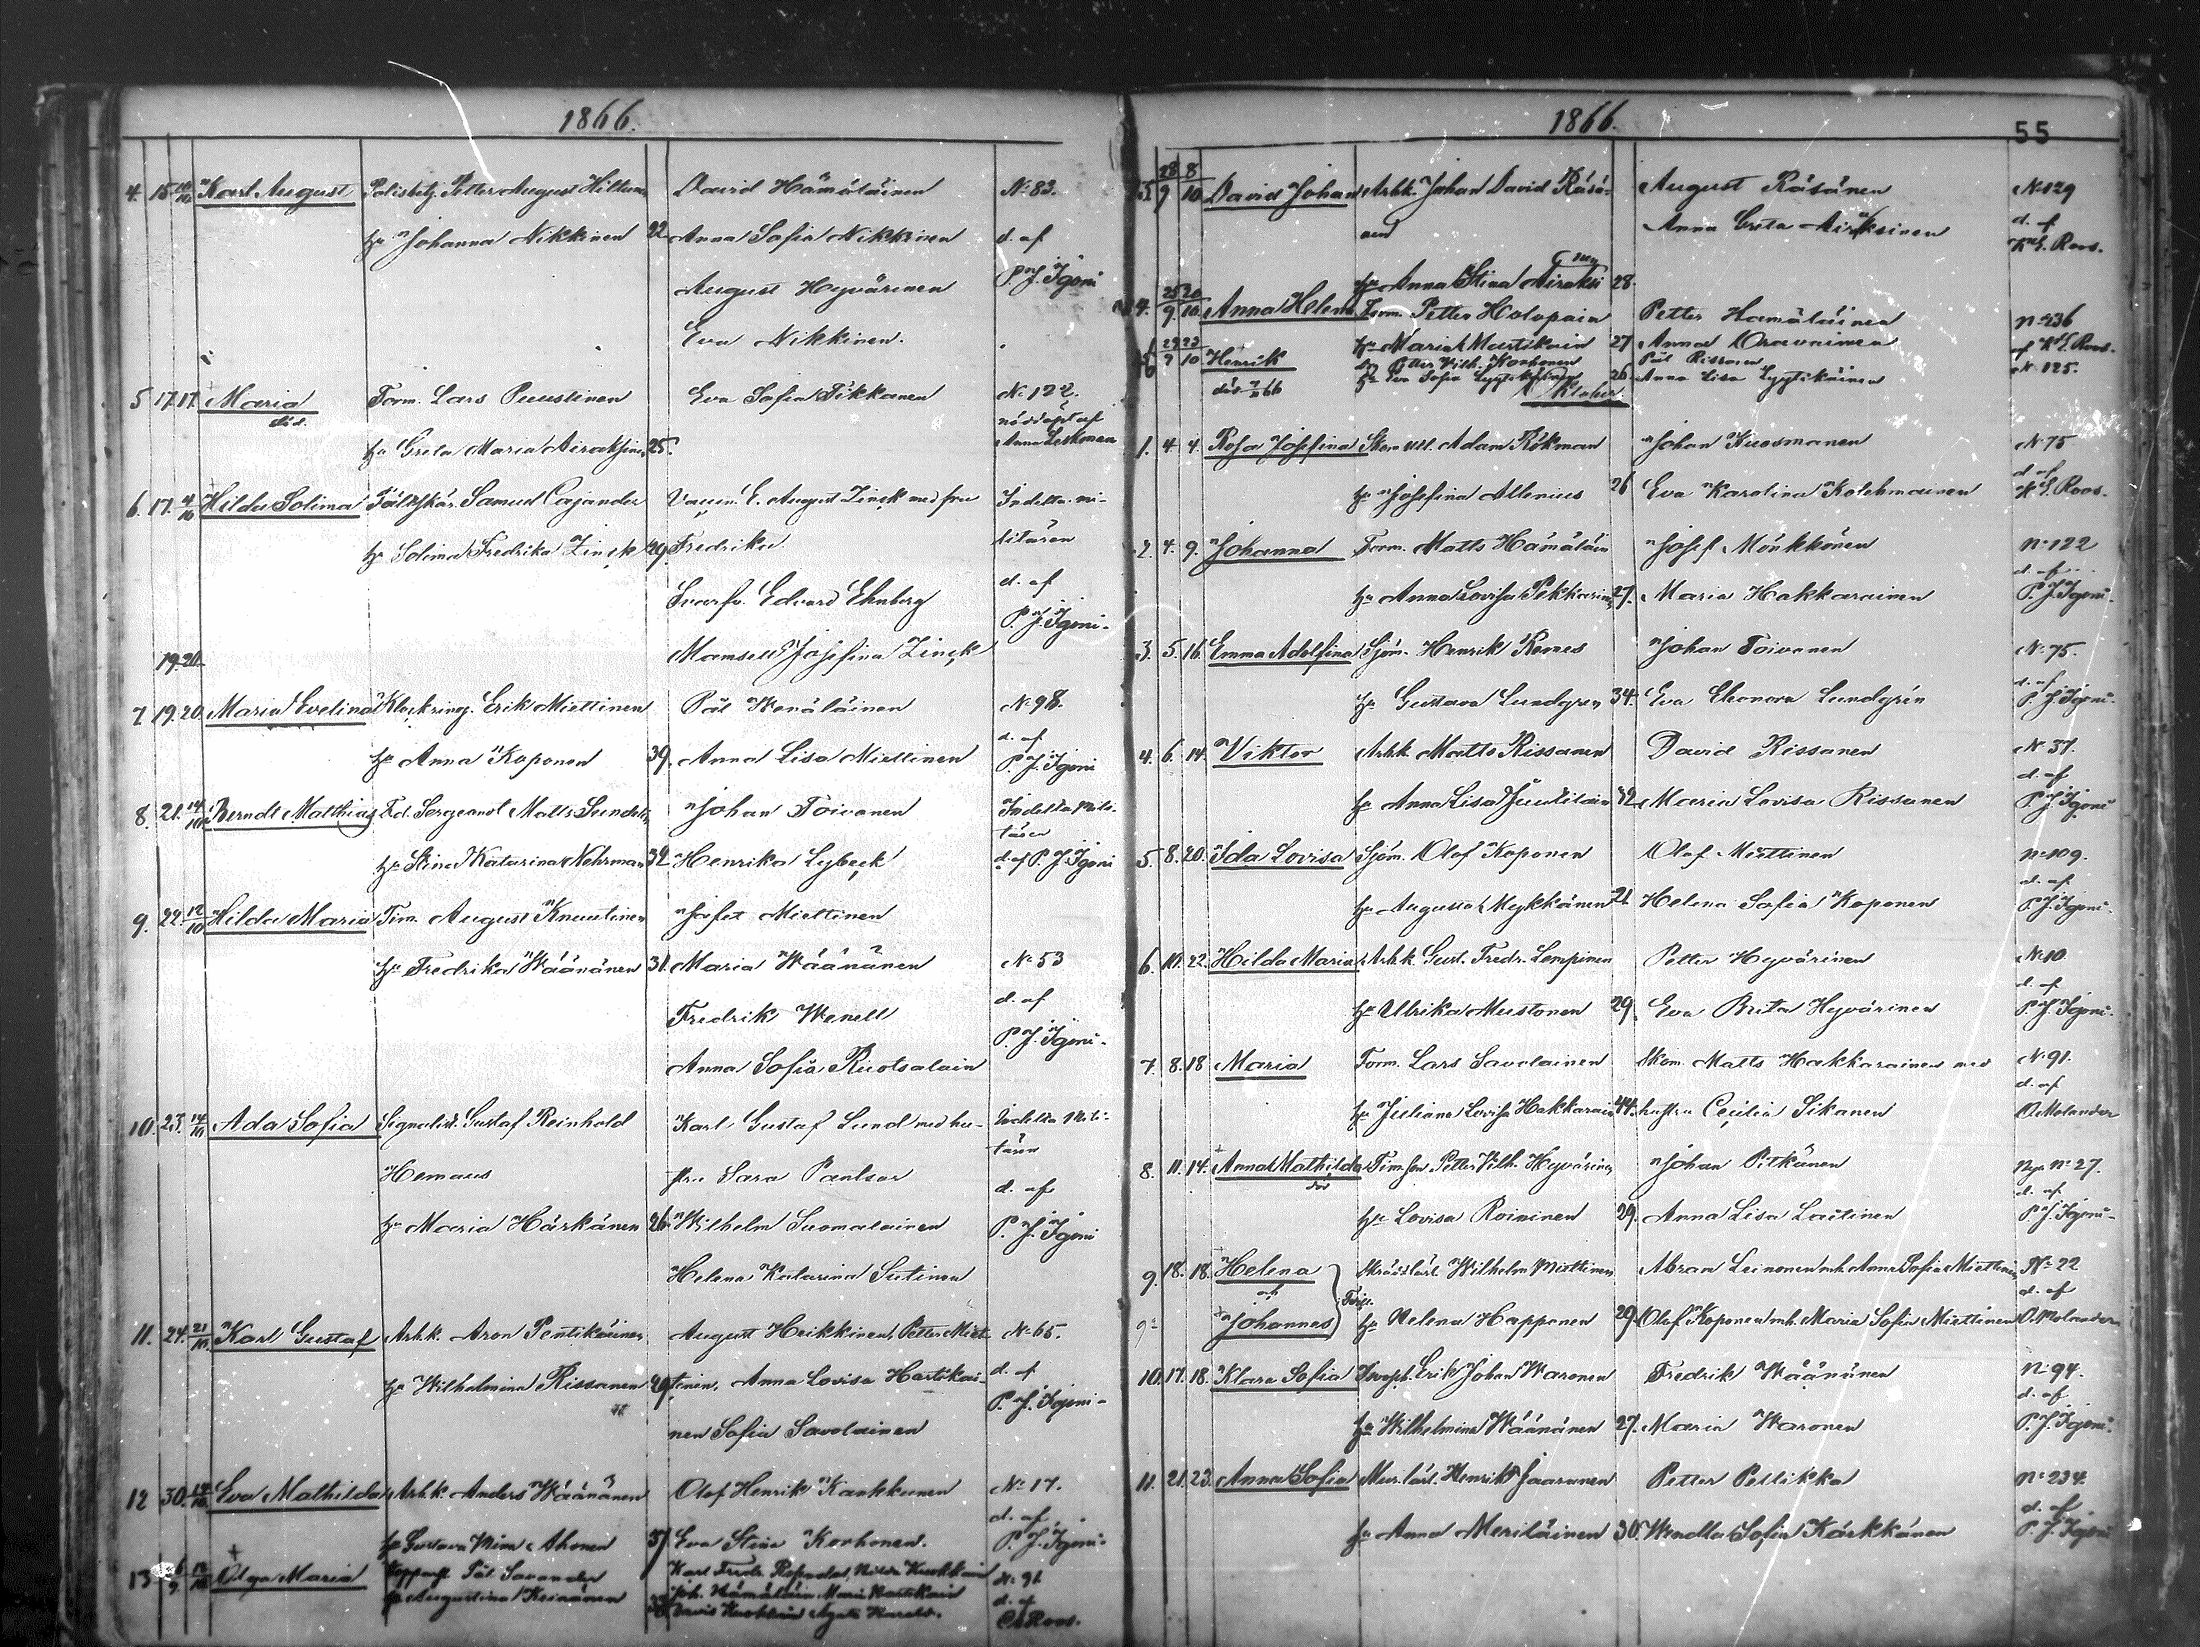 1866.
4. 15. 14/10 Karl August Polisbetj. Petter August Hiltunen David Hämäläinen N:83.
hu Johanna Nikkinen 22 Anna Sofia Nikkinen d. af
August Hyvärinen P. J. Igoni
Eva Nikkinen.
5 17. 17. Maria Torm. Lars Puustinen Eva Sofia Tikkanen N: 122.
död. nöddöpt af
hu Greta Maria Airaksinen 25. Anna Leskonen
6. 17. 4/10 Hilda Solima Fältskär. Samuel Cajander Vaccin. E. August Zinck med fru Indelta mi-
hu Solima Fredrika Zinck 29. Fredrika litären
Svarfv. Edvard Ehnberg d. af
P. J. Igoni.
19. 20. Mamsell Josefina Zinck
7 19. 20. Maria Evelina Klockring. Erik Miettinen Pål Wenäläinen N: 98.
d. af
hu Anna Koponen 39. Anna Lisa Miettinen P. J. Igoni
8. 21. 14/10 Berndt Matthias Fd. Sergeant Matts Sundst. Johan Toivanen Indelta Mili-
tären
hu Stina Katarina Nehrman 32 Henrika Lybeck d. af P. J. Igoni
9. 22. 12/10 Hilda Maria Tim. August Knuutinen Josef Miettinen
hu Fredrika Wäänänen 31. Maria Wäänänen N: 53
Fredrik Wenell d. af
P. J. Igoni.
Anna Sofia Ruotsalain
10. 23. 14/10 Ada Sofia Signalist. Gustaf Reinhold Karl Gustaf Lund med hu- Indelta Mili-
tären
Hemaus stru Sara Paulsar d. af
hu Maria Härkänen 26. Wilhelm Suomalainen P. J. Igoni
Helena Katarina Sutinen
11. 24. 21/10 Karl Gustaf Arbk. Aron Pentikäinen August Heikkinen, Petter Miet- N: 65.
hu Wilhelmina Rissanen 40 tinen, Anna Lovisa Hartikai- d. af
P. J. Igoni.
nen Sofia Savolainen
12 30. 14/10 Eva Mathilda Arbk. Anders Wäänänen Olof Henrik Kaukkunen N: 17.
d. af
hu Gustava Mina Ahonen 37 Eva Stina Korhonen. P. J. Igoni.
13 Olga Maria Kopparsl. Pål Savander Karl Fredr. N: 91
hu Augustina Keinänen Joh. Hämäläin. Maria Hartikain d. af
Roos.
1866. 55
28/9 8/10 David Johan Arbk. Johan David Räsä- August Räsänen N:129
nen Anna Greta Airaksinen d. af
K. E. Roos.
hu Anna Stina Airaksi nen 28.
4. 25/9 20/10 Anna Helena Torm. Petter Holopain Petter Hämäläinen N:136
hu Maria Martikain 27 Anna Oravainen af K. E. Roos.
29/9 23/10 Henrik Petter Wilh. Korhonen Pål Rissanen N: 125.
död 66 hu Eva Sofia Lyytikäinen 26 Anna Lisa Lyytikäinen
Oktober.
1. 4 4. Rosa Josefina Skom. Adam Rökman Johan Kuosmanen N: 75
d. af
hu Josefina Allenius 26 Eva Karolina Kolehmainen K. E. Roos.
2. 4. 9. Johanna Torm. Matts Hämäläin Josef Mönkkönen N: 122
d. af
hu Anna Lovisa Pekkarinen 27. Maria Hakkarainen P. J. Igoni.
3. 5. 16. Emma Adolfina Sjöm. Henrik Romes Johan Toivanen N: 75.
d. af
hu Gustava Lundgren 34. Eva Eleonora Lundgrén P. J. Igoni.
4. 6. 14 Viktor Arbk. Matts Rissanen David Rissanen N: 37.
d. af
hu Anna Lisa Juutilain 32 Maria Lovisa Rissanen P. J. Igoni
5. 8. 20. Ida Lovisa Sjöm. Olof Koponen Olof Miettinen N: 109.
d. af
hu Augusta Mykkänen 21 Helena Sofia Koponen P. J. Igoni.
6. 10. 22. Hilda Maria Arbk. Gust. Fredr. Lempinen Petter Hyvärinen N:10
d. af
hu Ulrika Mustonen 29. Eva Brita Hyvärinen P. J. Igoni.
7. 8. 18 Maria Torm. Lars Savolainen Skom. Matts Hakkarainen med N: 91.
d. af
hu Juliana Lovisa Hakkarain 44. hustru Cecilia Sikanen O. Molander
8. 11. 14. Anna Mathilda Timson Petter Wilh. Hyvärinen Johan Pitkänen Nya N: 27.
död d. af
hu Lovisa Roininen 29. Anna Lisa Laitinen P. J. Igoni.
9. 18. 18. Helena Skräddarl. Wilhelm Miettinen Abram Leinonen mh. Anna Sofia Miettinen N: 22
och Tvill. d. af
9: Johannes hu Helena Happonen 29 Olof Koponen mh. Maria Sofia Miettinen O. Molander
10. 17. 18. Klara Sofia Erik Johan Waronen Fredrik Wäänänen N: 94.
d. af
hu Wilhelmina Wäänänen 27. Maria Waronen P. J. Igoni.
11. 21. 23. Anna Sofia Mur.lärl. Henrik Jaaranen Petter Pellikka N: 234.
d. af
hu Anna Meriläinen 30. Wendla Sofia Kärkkänen P. J. Igoni